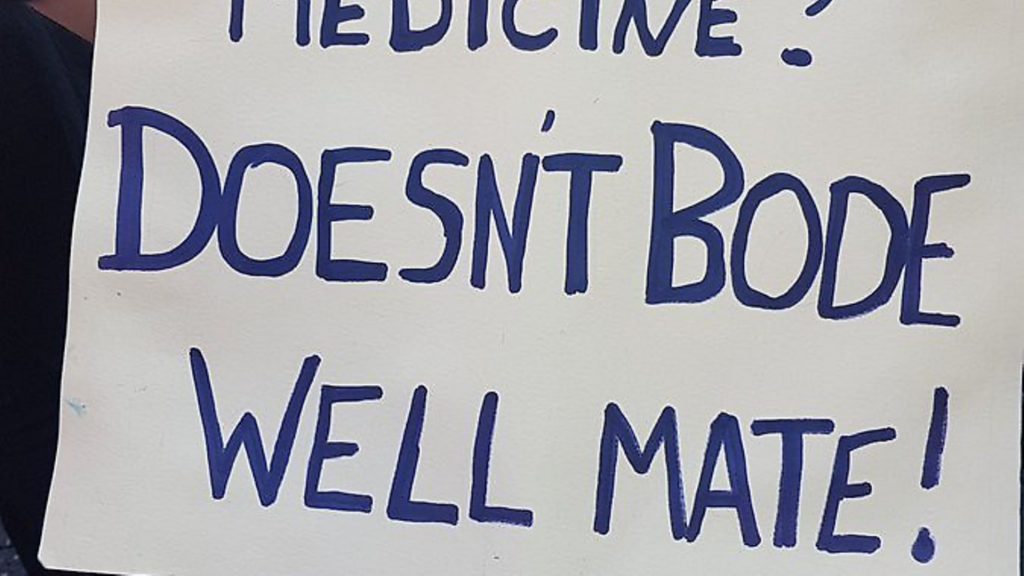 MEDICINE?
DOESN'T BODE
WELL MATE!